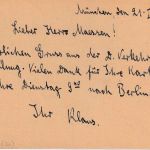 München, den 21.
Lieber Herr Maassen!
tlichen Gruss aus der D. Verkehr
llung. Vielen Dank für Ihre Kart
hre Dienstag nach Berlin
Ihr Klaus.